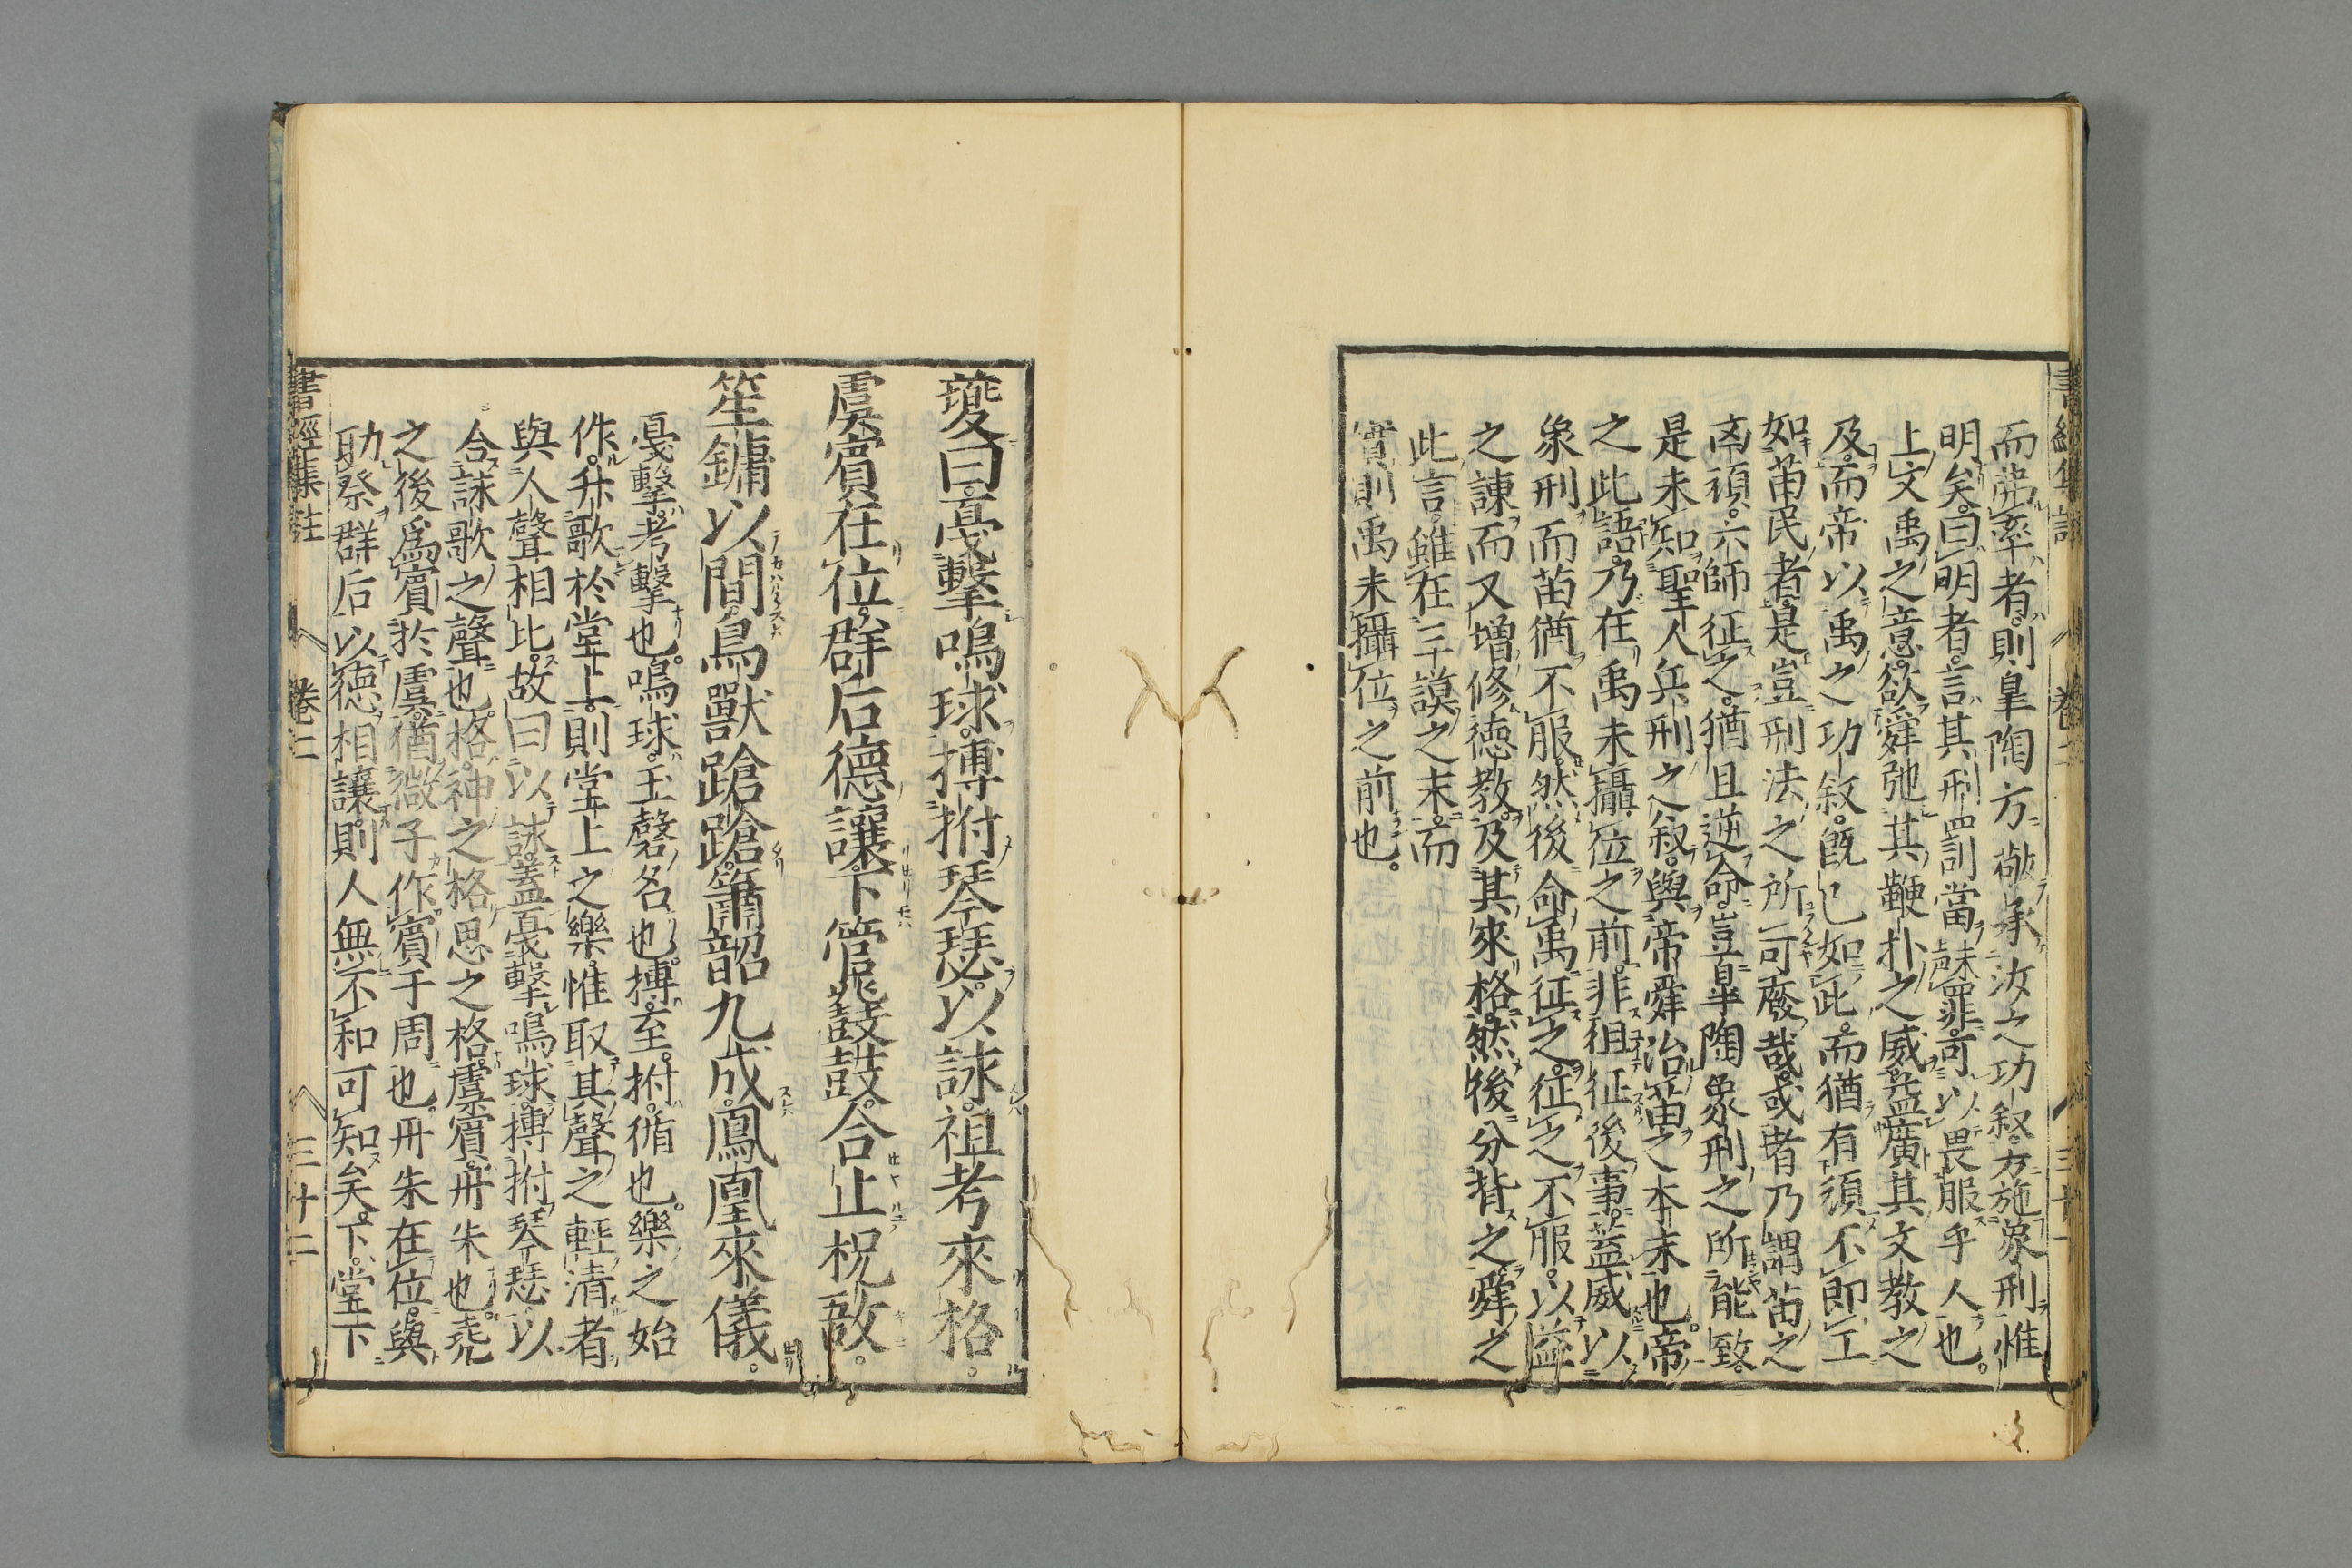 而弗率者則皐陶方敬承汝之功叙方施象刑惟
明矣曰明者言其刑罰當罪可以畏服乎人也
上文禹之意欲舜弛其鞭朴之威益廣其文教之
及而帝以禹之功叙既已如此而猶有頑不即工
如苗民者是豈刑法之所可廢哉或者乃謂苗之
頑六師征之猶且逆命豈皐陶象刑之所能致
是未知聖人兵刑之叙與帝舜治苗之本末也帝
之此語乃在禹未攝位之前非徂征後事蓋威以
象刑而苗猶不服然後命禹征之征之不服以益
之諫而又增修徳教及其來格然後分背之舜之
此言雖在三謨之末而
實則禹未攝位之前也
夔曰戞擊鳴球搏拊琴瑟以詠祖考來格
虞賓在位群后德讓下管鼗鼓合止柷敔
笙鏞以間鳥獸蹌蹌簫韶九成鳳凰來儀
戞擊考擊也鳴球玉磬名也搏至拊循也樂之始
作升歌於堂上則堂上之樂惟取其聲之輕清者
與人聲相比故曰以詠蓋戞擊鳴球搏拊琴瑟以
合詠歌之聲也格神之格思之格虞賓丹朱也堯
之後爲賓於虞猶微子作賓于周也丹朱在位與
助祭群后以徳相讓則人無不和可知矣下堂下
書經集註 卷二 三十二